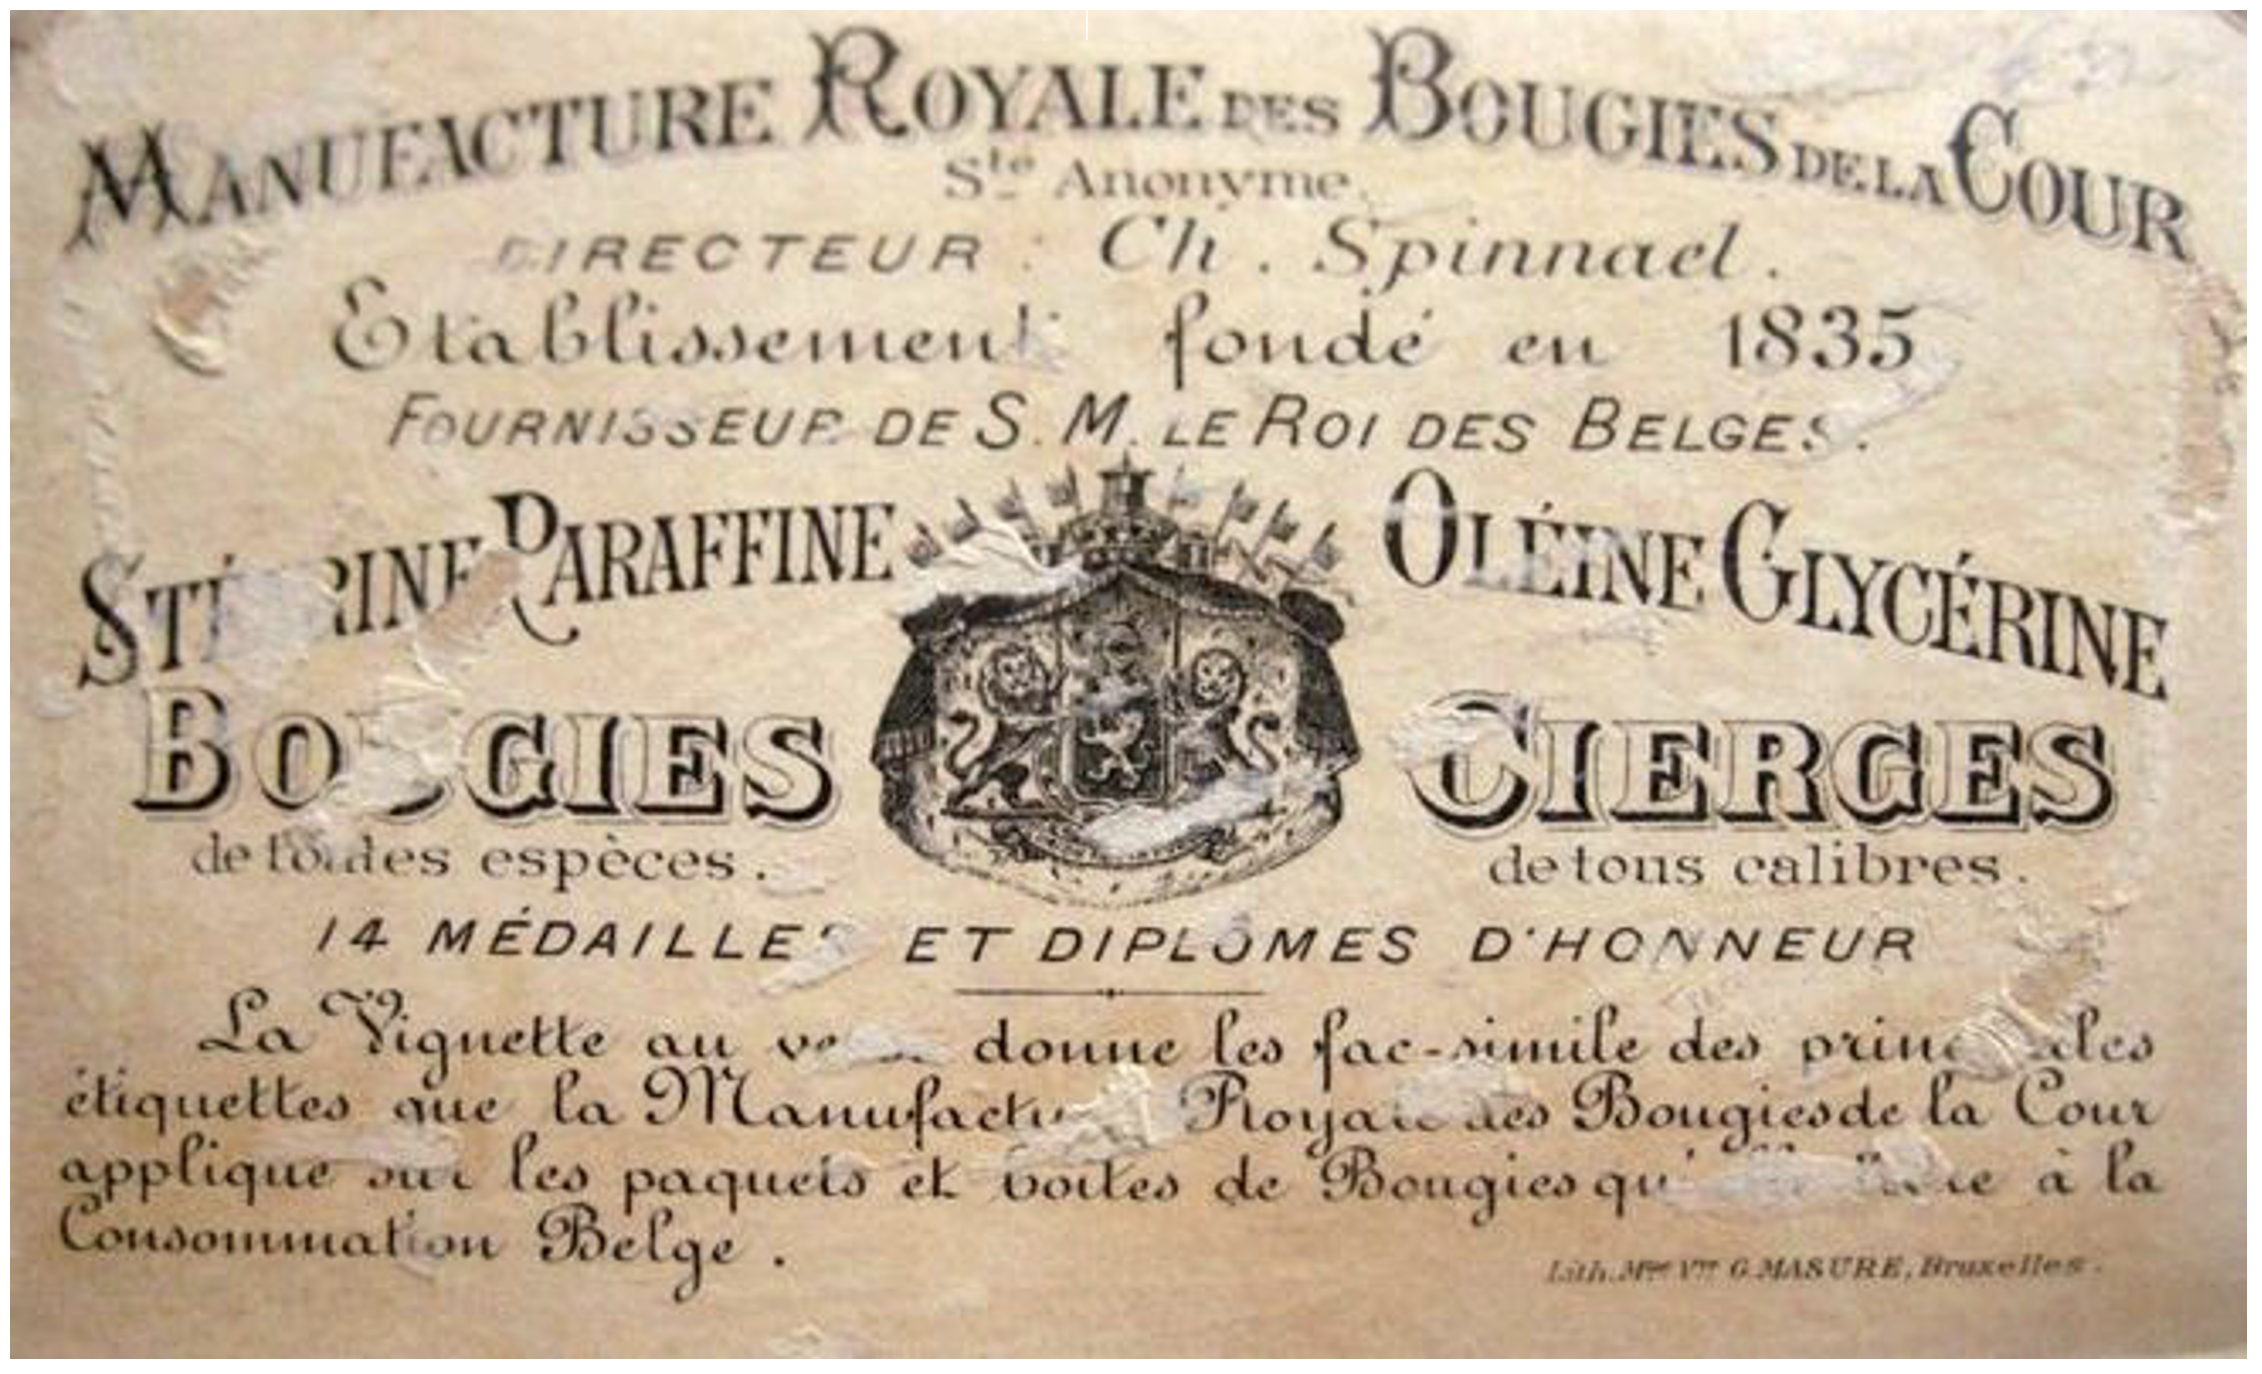 MANUFACTURE ROYALE DES BOUGIES DE LA COUR
Sté Anonyme.
DIRECTEUR : Ch. Spinnael.
Etablissement fondé en 1835
FOURNISSEUR DE S. M. LE ROI DES BELGES.
STÉARINE PARAFFINE OLÉINE GLYCÉRINE
BOUGIES CIERGES
de toutes espèces. de tous calibres.
14 MÉDAILLES ET DIPLÔMES D'HONNEUR
La Vignette au donne les fac-simile des principales
étiquettes que la Manufacture Royale des Bougies de la Cour
applique sur les paquets et boites de Bougies à la
Consommation Belge.
Lith. Mme Vve G. MASURE, Bruxelles.